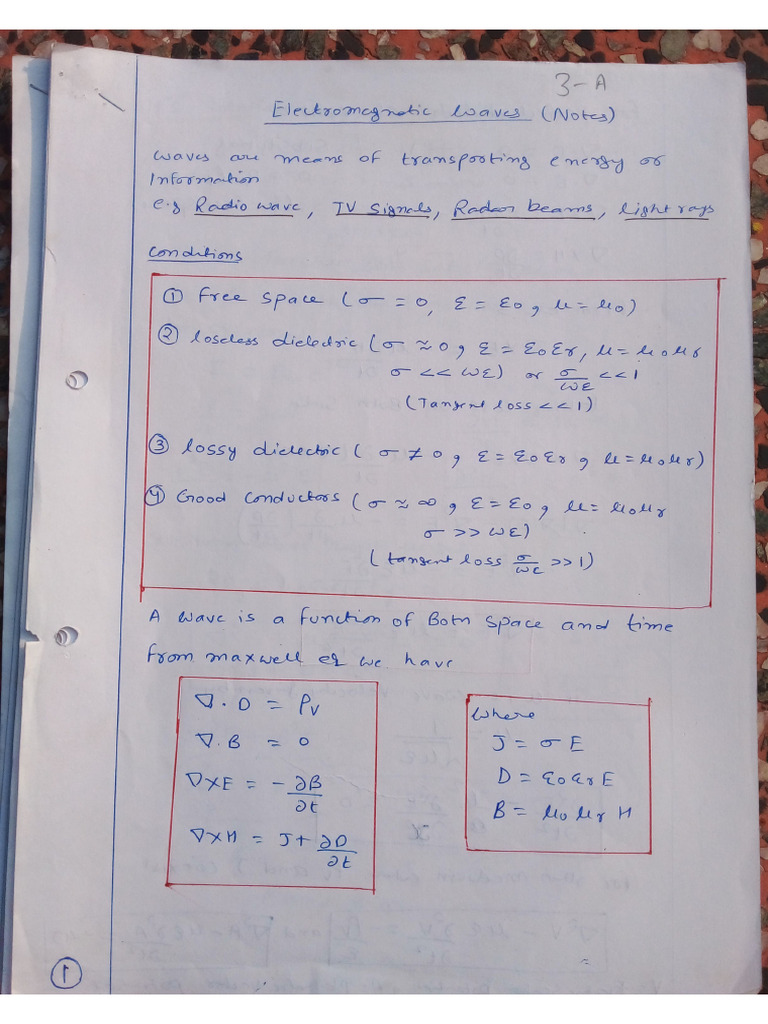 3-A
Electromagnetic Waves (Notes)
Waves are means of transporting energy or
Information
e.g Radio wave, TV Signals, Radar beams, light rays
Conditions
① Free Space (σ = 0, ε = ε0, μ = μ0)
② Loseless dielectric (σ ≈ 0, ε = ε0εr, μ = μ0μr
σ << ωε) or σ/ωε << 1
(Tangent loss << 1)
③ Lossy dielectric (σ ≠ 0, ε = ε0εr, μ = μ0μr)
④ Good Conductors (σ ≈ ∞, ε = ε0, μ = μ0μr
σ >> ωε)
(tangent loss σ/ωε >> 1)
A wave is a function of Both Space and time
from maxwell eq we have
∇. D = ρv
∇. B = 0
∇XE = -∂B/∂t
∇XH = J + ∂D/∂t
where
J = σ E
D = ε0 εr E
B = μ0 μr H
①